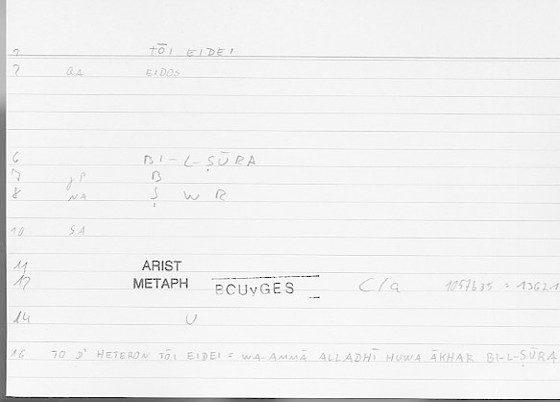 1 TŌI EIDEI
2 GA EIDOS
6 BI-L-ṢŪRA
7 gP B
8 NA Ṣ W R
10 SA
11 ARIST
12 METAPH BOUyGES C/a 1057b35 = 1362,1
14 U
16 TO D' HETERON TŌI EIDEI = WA-AMMĀ ALLADHĪ HUWA ĀKHAR BI-L-ṢŪRA